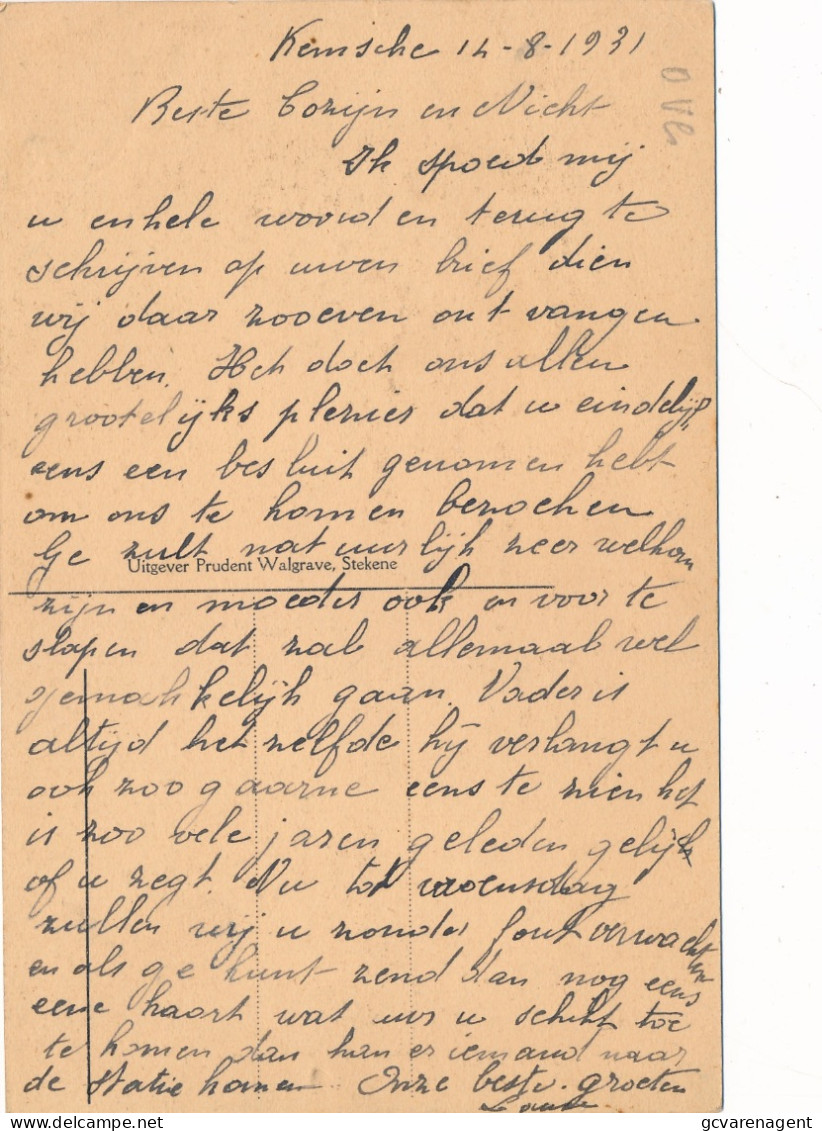 Kemsche 14-8-1931
OVl
Beste Cozijn en Nicht
Ik spoed mij
u enkele woorden terug te
schrijven op uwen brief dien
wij daar zooeven ontvangen
hebben. Het doch ons allen
grootelijks plezier dat u eindelijk
eens een besluit genomen hebt
om ons te komen bezoeken
Ge zult natuurlijk zeer welkom
Uitgever Prudent Walgrave, Stekene
zijn en moeder ook en voor te
slapen dat zal allemaal wel
gemakkelijk gaan. Vader is
altijd het zelfde hij verlangt u
ook zoo gaarne eens te zien het
is zoo vele jaren geleden gelijk
of u zegt. Nu tot woensdag
zullen wij u zonder fout verwachten
en als ge kunt zend dan nog eens
eene kaart wat uur u schikt toe
te komen dan kan er iemand naar
de statie komen. Onze beste groeten
gcvarenagent@gmail.com